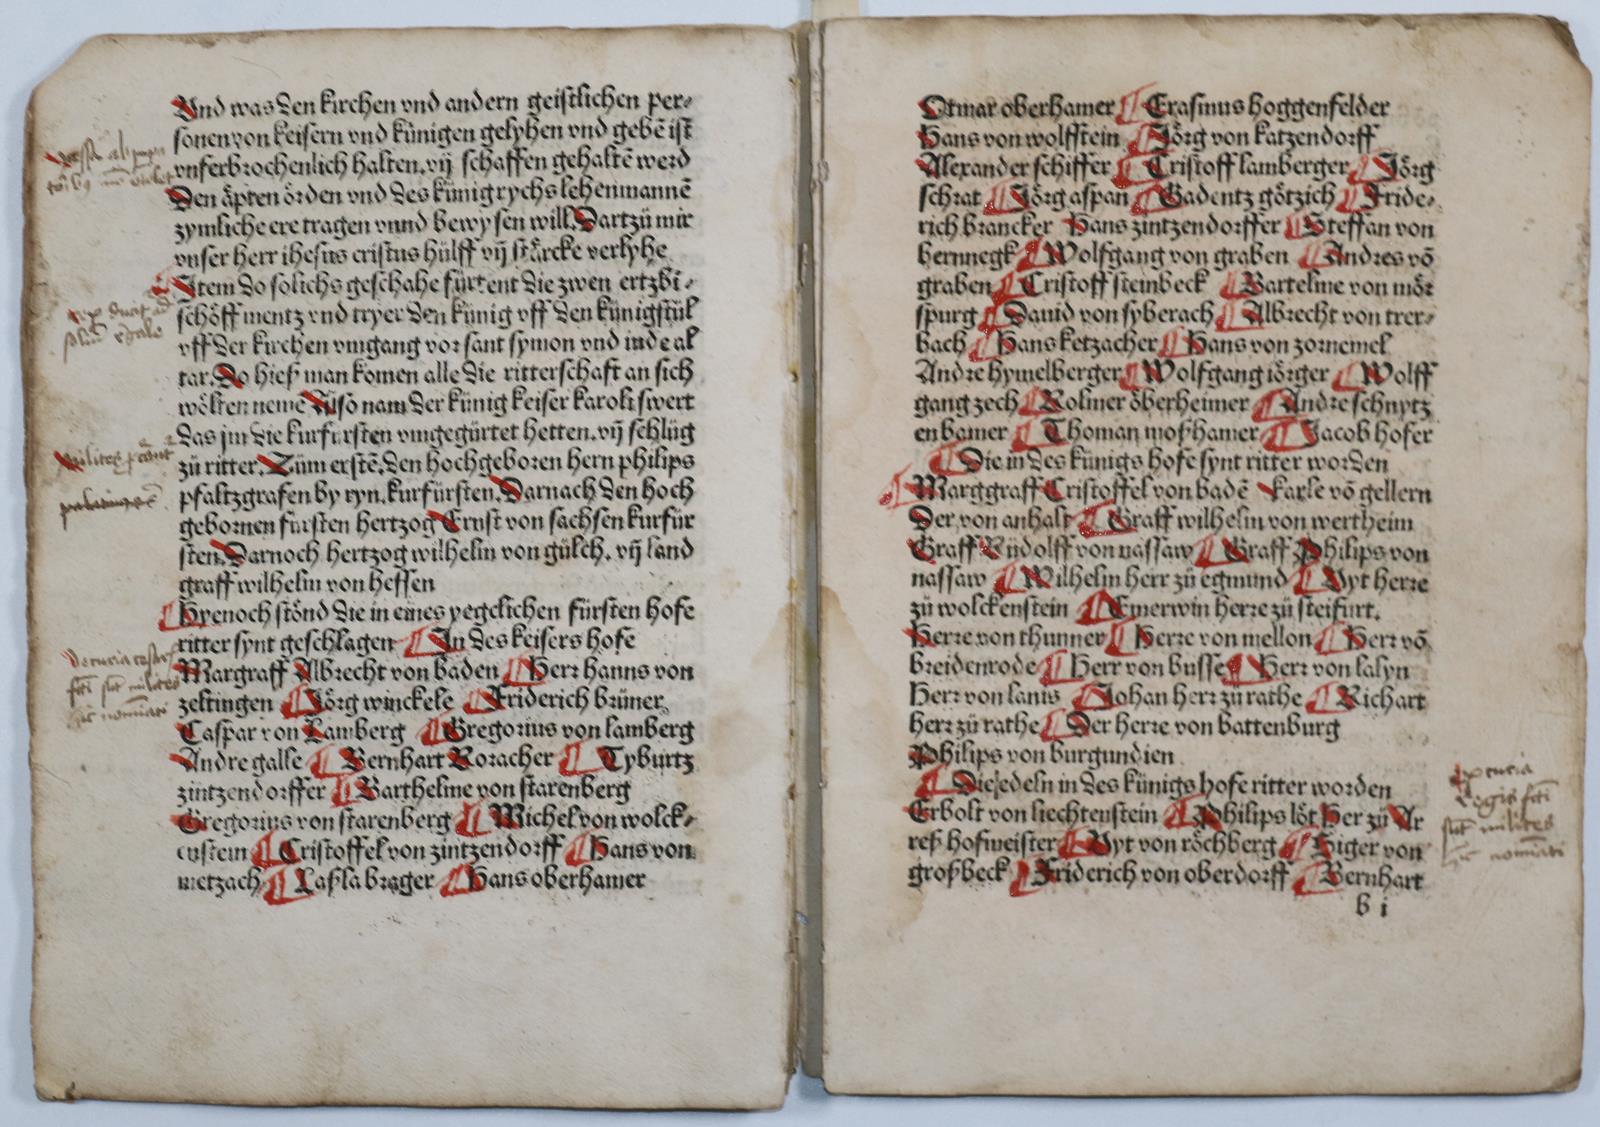 Vnd was den kirchen vnd andern geistlichen per⸗
sonen von keisern vnd künigen gelyhen vnd gebē ist
vnferbrochenlich halten. vñ schaffen gehaltē werd
Den äpten örden vnd des künigrychs lehenmannē
zymliche ere tragen vnnd bewysen will. Dartzü mir
vnser herr ihesus cristus hülff vñ stärcke verlyhe
Item do solichs geschahe fürtent die zwen ertzbi⸗
schöff mentz vnd tryer den künig vff den künigstül
vff der kirchen vmgang vor sant symon vnd iude al
tar. Do hieß man komen alle die ritterschaft an sich
wölten neme Also nam der künig keiser karoli swert
das jm die kurfursten vmgegürtet hetten. vñ schlüg
zü ritter. Züm erstē. den hochgeboren hern philips
pfaltzgrafen by ryn. kurfürsten. Darnach den hoch
gebornen fürsten hertzog Ernst von sachsen kurfür
sten. Darnoch hertzog wilhelm von gülch. vñ land
graff wilhelm von hessen
¶ Hyenoch stönd die in eines yegclichen fürsten hofe
ritter synt geschlagen ¶ In des keisers hofe
Margraff Albrecht von baden ¶ Herr hanns von
zeltingen ¶ Jörg winckele ¶ Friderich brüner
Caspar von Lamberg ¶ Gregorius von lamberg
Andre galle ¶ Bernhart Roracher ¶ Tyburtz
zintzendorffer ¶ Barthelme von starenberg
Gregorius von starenberg ¶ Michel von wolck⸗
enstein ¶ Cristoffel von zintzendorff ¶ Hans von
metzach ¶ Laßla brager ¶ Hans oberhamer
palatinus
De curia
milites
Otmar oberhamer ¶ Erasmus hoggenfelder
Hans von wolffstein ¶ Jörg von katzendorff
Alexander schiffer ¶ Cristoff lamberger ¶ Jörg
schrat ¶ Jörg aspan ¶ Gadentz götzich ¶ Fride⸗
rich brancker Hans zintzendorffer ¶ Steffan von
bernnegk ¶ Wolfgang von graben ¶ Andres vō
graben ¶ Cristoff steinbeck ¶ Bartelme von mör
spurg ¶ Dauid von syberach ¶ Albrecht von trer⸗
bach ¶ Hans ketzacher ¶ Hans von zornemel
Andre hymelberger ¶ Wolfgang iörger ¶ Wolff
gang zech ¶ Rolmer öberheimer ¶ Andre schnytz
enbamer ¶ Thoman moßhamer ¶ Jacob hofer
¶ Die in des künigs hofe synt ritter worden
¶ Marggraff Cristoffel von badē karle vō gellern
Der von anhalt ¶ Graff wilhelm von wertheim
Graff Rüdolff von nassaw ¶ Graff Philips von
nassaw ¶ Wilhelm herr zü egmund ¶ Vyt herre
zü wolckenstein ¶ Emerwin herre zü steifurt.
Herre von thunner ¶ Herre von mellon ¶ Herr vō
breidenrode ¶ Herr von busse ¶ Herr von lalyn
Herr von lanis ¶ Johan herr zü rathe ¶ Richart
herr zü rathe ¶ Der herre von battenburg
Philips von burgundien
¶ Die edeln in des künigs hofe ritter worden
Erbolt von liechtenstein ¶ Philips löt Her zü Ar
reß hofmeister ¶ Vyt von röchberg ¶ Higer von
großbeck ¶ Friderich von oberdorff ¶ Bernhart
b i
Ex curia
Regis
milites